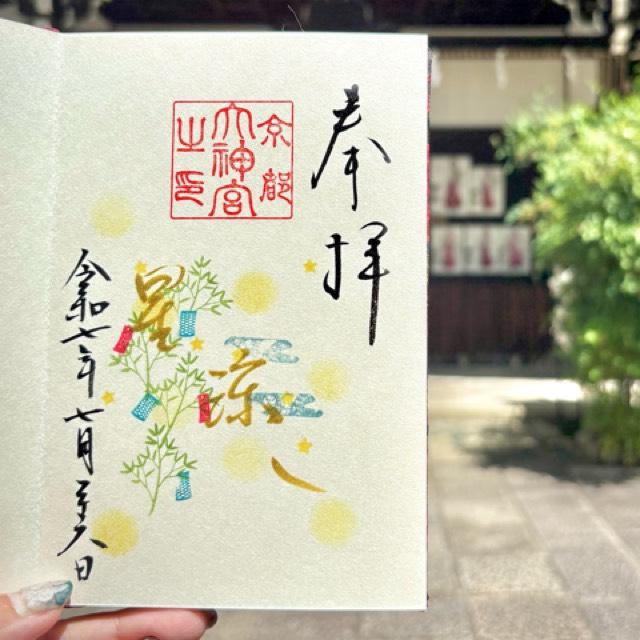 奉拝
京都
大神宮
之印
星涼し
令和七年七月二十八日